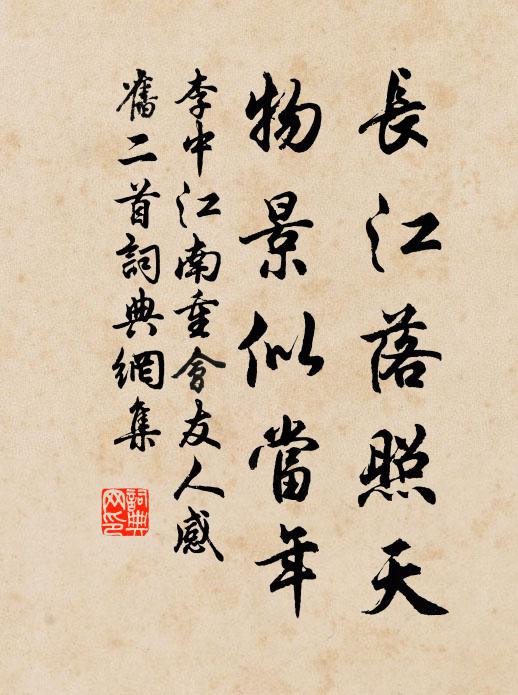 長江落照天
物景似當年
李中江南重會友人感
舊二首詞典網集
詞典
网印